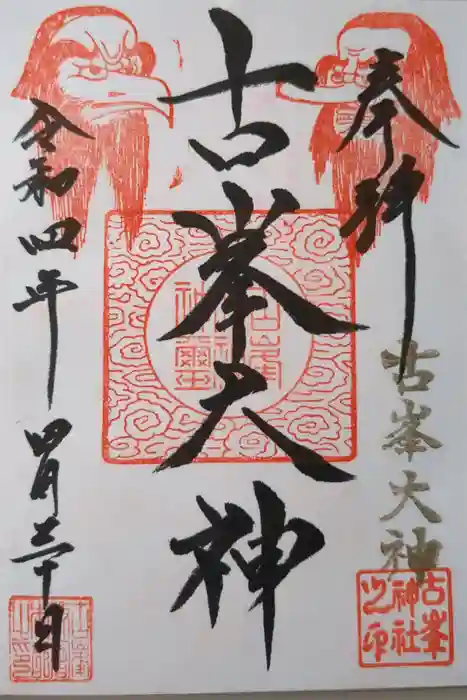 奉拝
古峯大神
古峯神社之印
古峯大神
令和四年四月三十日